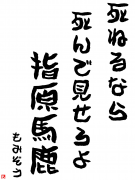 死ねるなら
死んで見せろよ
指原馬鹿
もみぞう